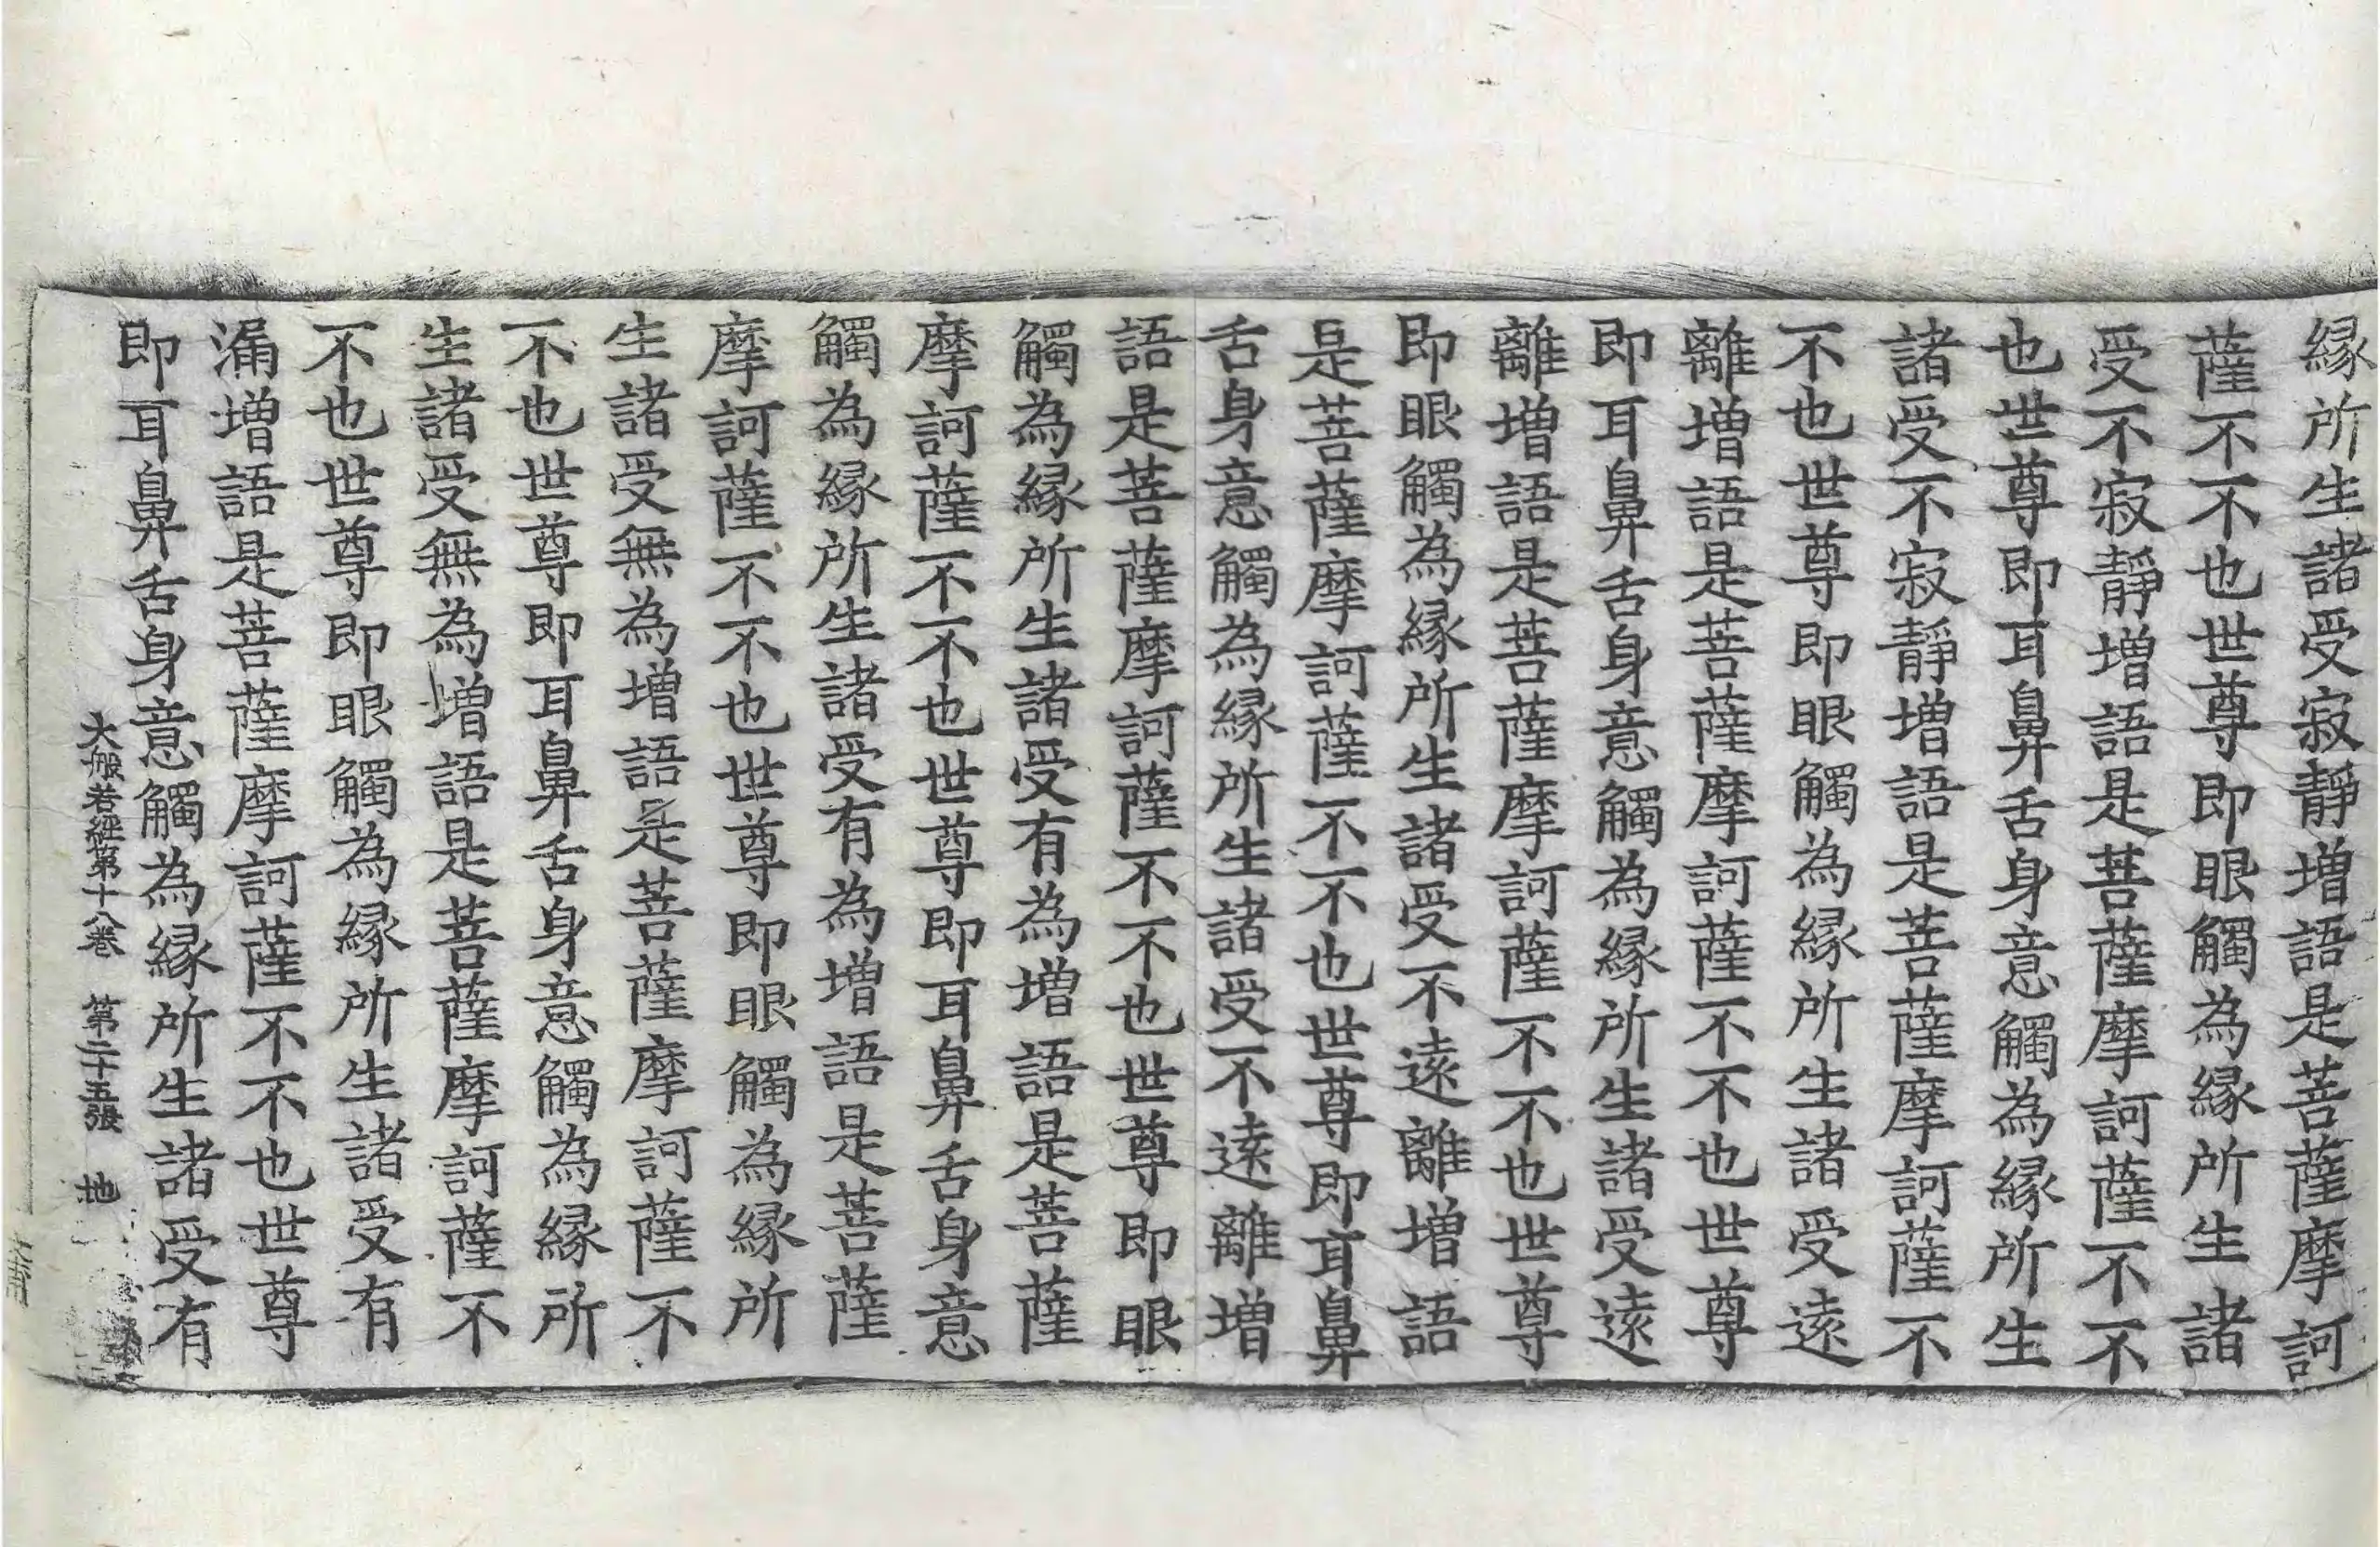 縁所生諸受寂靜増語是菩薩摩訶
薩不不也世尊即眼觸為縁所生諸
受不寂靜増語是菩薩摩訶薩不不
也世尊即耳鼻舌身意觸為縁所生
諸受不寂靜増語是菩薩摩訶薩不
不也世尊即眼觸為縁所生諸受遠
離増語是菩薩摩訶薩不不也世尊
即耳鼻舌身意觸為縁所生諸受遠
離増語是菩薩摩訶薩不不也世尊
即眼觸為縁所生諸受不遠離増語
是菩薩摩訶薩不不也世尊即耳鼻
舌身意觸為縁所生諸受不遠離増
語是菩薩摩訶薩不不也世尊即眼
觸為縁所生諸受有為増語是菩薩
摩訶薩不不也世尊即耳鼻舌身意
觸為縁所生諸受有為増語是菩薩
摩訶薩不不也世尊即眼觸為縁所
生諸受無為増語是菩薩摩訶薩不
不也世尊即耳鼻舌身意觸為縁所
生諸受無為増語是菩薩摩訶薩不
不也世尊即眼觸為縁所生諸受有
漏増語是菩薩摩訶薩不不也世尊
即耳鼻舌身意觸為縁所生諸受有
大般若經第十八卷 第二十五張 地